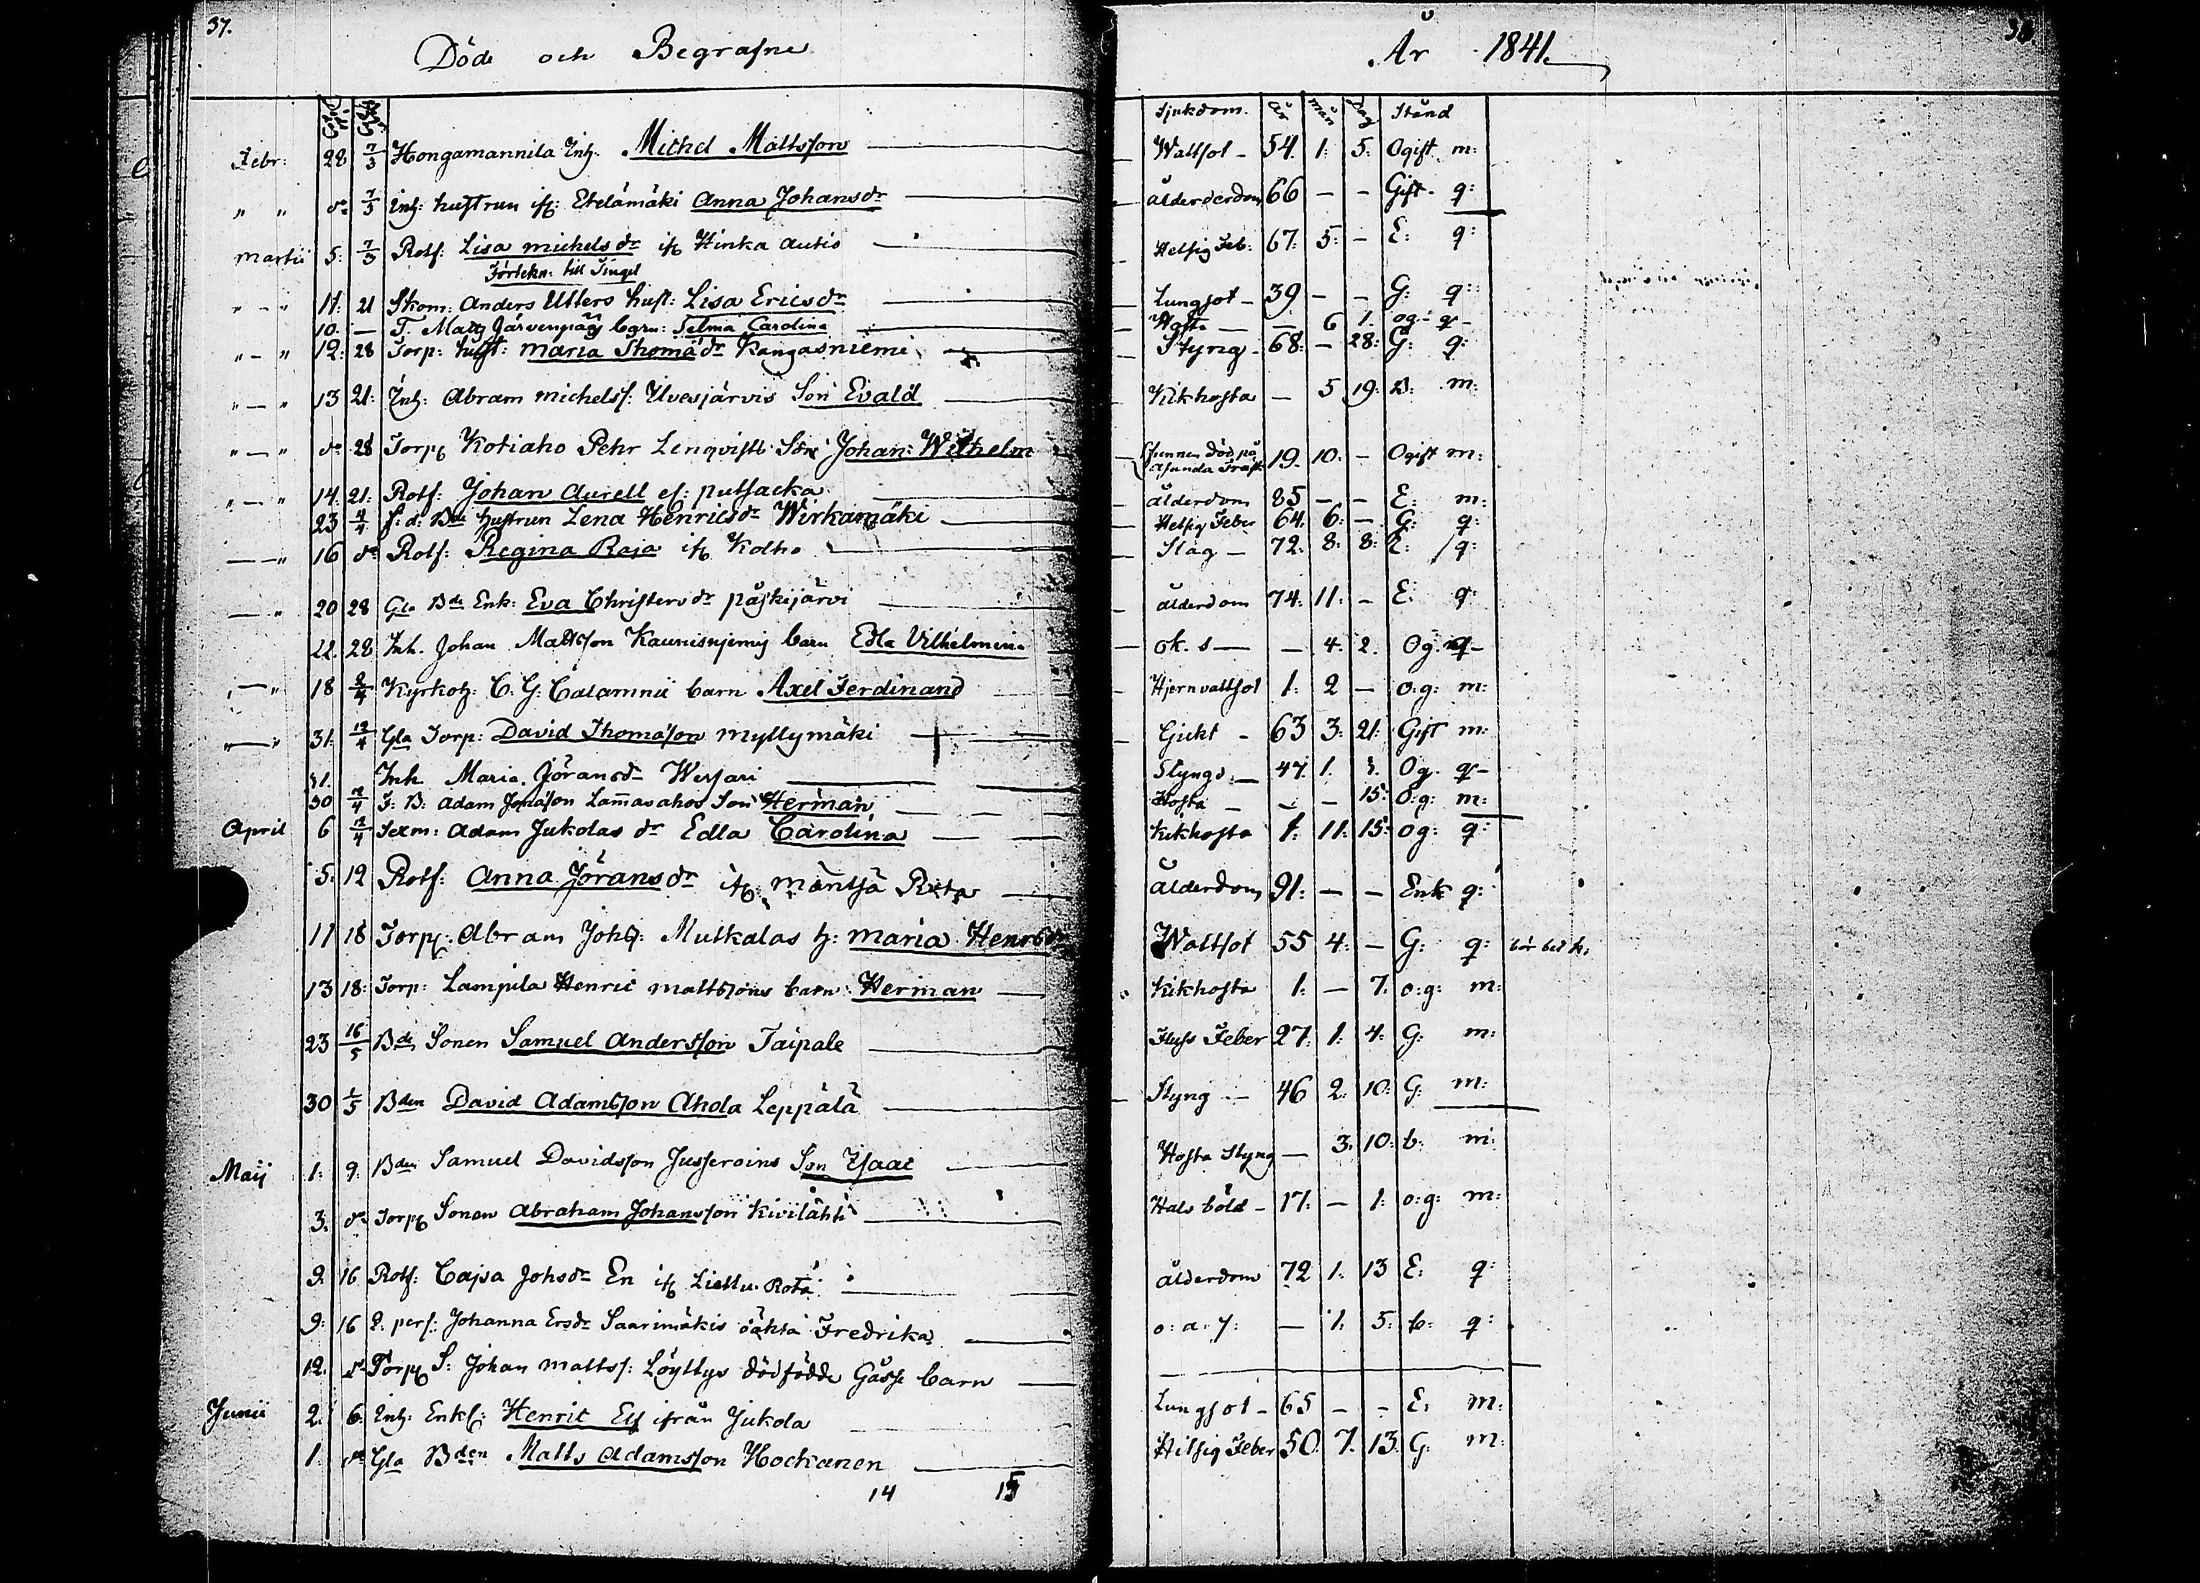 37.
Döde och Begrafne
År 1841.
Sjukdom. År Mån Dag Stånd
Febr: 28 7/3 Hongamannila Inh. Michel Mattsson — Wattsot - 54. 1: 5: Ogift m:
" " do 7/3 Inh: hustrun ifr: Etelämäki Anna Johansdr — ålderdom 66 - - Gift. q:
Martii 5: 7/3 Rotf: Lisa michelsdr ifr Hinka autio — Hetsig Feb: 67: 5: - E: q:
Förtekn: till Fingel
" - " 11: 21 Skom: Anders Utters hust: Lisa Ericsdr — Lungsot - 39 - - G: q:
10. — T. Matts Järvenpääs barn: Selma Carolina — Hosta — — 6 1. og- q-
" - " 12: 28 Torp: hust: maria Thomædr Kangasniemi — Styng - 68: - 28: G: q:
" - " 13 21: Inh: Abram michelss: Ilvesjärvis Son Evald — Kikhosta - 5 19: B: m:
" - " do 28 Torp Kotiaho Pehr Lenqvists Son Johan Wilhelm — funnen död på Träsk 19. 10: - Ogift m:
" - " 14. 21: Rotf: Johan Aurell ef: putsacka — ålderdom 85 - - E: m:
23 4/4 f: d: Bde hustrun Lena Henricsdr Wirkamäki — Hetsig Feber 64. 6: - G: q:
— " 16 do Rotf: Regina Raja ifr Kolho — Slag - 72: 8: 8: E: q:
— " 20 28 Gla Bde Enk: Eva Christersdr påskijärvi — ålderdom 74: 11: - E: q:
22. 28 Inh. Johan Mattsson Kaunisnjemis barn Edla Vilhelmina — ok. s — - 4. 2. Og. q-
" — " 18 2/4 Kyrkoh: C: G: Calamnii barn Axel Ferdinand — Hjernvattsot 1: 2 - o:g: m:
" — " 31: 12/4 Gla Torp: David Thomasson myllymäki — Gickt - 63 3: 21: Gift m:
31. Inh Maria Göransdr Wessari — Styngs. — 47. 1. Og. q-
30 12/4 F: B: Adam Jonasson Lammasahos Son Herman — Hosta - - - 15: O:g: m:
April 6 12/4 Sexm: Adam Jukolas dr Edla Carolina — Kikhosta 1: 11: 15: og: q:
5: 12 Rotf: Anna Jöransdr ifr: mäntsä Rota — Ålderdom 91: - - Enk q:
11 18 Torp: Abram Johs: Mutkalas h: maria Henrsdr Wattsot 55 4: - G: q:
13 18: Torp: Lampila Henric mattssons barn Herman — Kikhosta 1: - 7. o:g: m:
23 16/5 Bde Sonen Samuel Andersson Taipale — Fluss Feber 27: 1: 4: G: m:
30 1/5 Bden David Adamsson Ahola Leppälä — Styng — 46 2: 10: G: m:
Maij 1: 9: Bden Samuel Davidsson Jusseroins Son Isaac — Hosta Styng - 3: 10: b: m:
3: do Torp Sonen Abraham Johansson Kivilähti — Hals böld - 17: - 1: o:g: m:
9: 16 Rotf: Cajsa Johsdr En ifr Liettu Rota — ålderdom 72 1: 13 E: q:
9: 16 Q: pers: Johanna Ersdr Saarimäkis oäkta Fredrika — o: a: 7: - 1: 5: b: q:
12. do Torp S: Johan mattss: Löyttys dödfödde Gosse barn —
Junii 2: 6. Inh: Enkl: Henric Es ifrån Jukola — Lungsot - 65 - - E: m:
1. do Gla Bden Matts Adamsson Hockanen — Hitsig Feber 50. 7. 13. G: m:
14 15